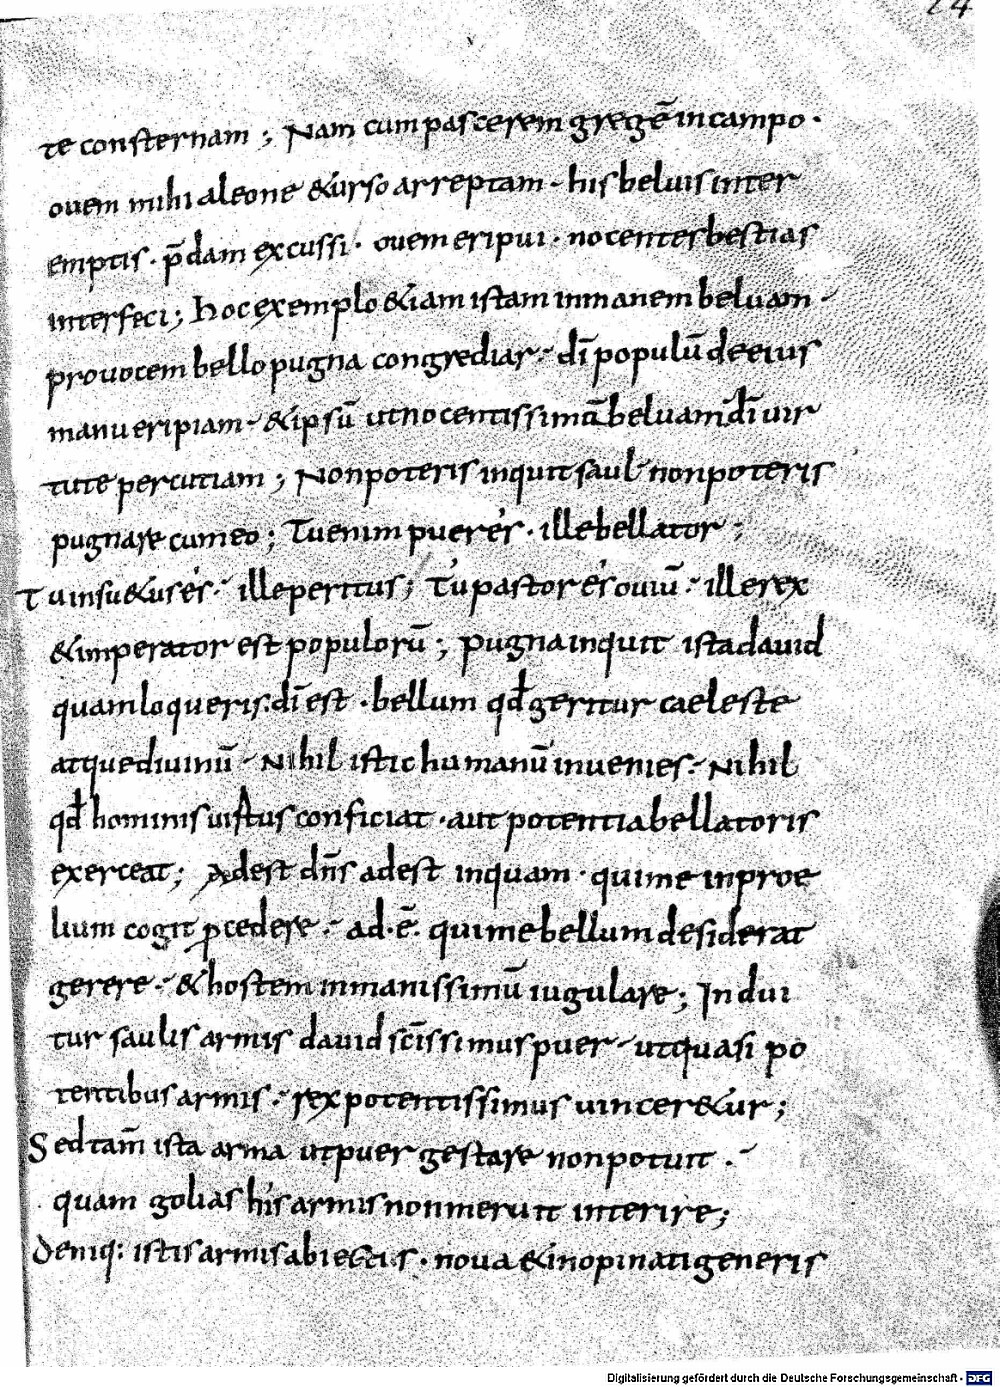 24
te consternam ; Nam cum pascerem gregē in campo ·
ouem mihi a leone & urso arreptam · his beluis inter
emptis · p̄dam excussi · ouem eripui · nocentes bestias
interfeci ; hoc exemplo & iam istam inmanem beluam ·
prouocem bello pugna congrediar · dī populū de eius
manu eripiam · & ipsū ut nocentissimā beluam dī uir
tute percutiam ; Non poteris inquit saul · non poteris
pugnare cum eo ; Tu enim puer es · ille bellator ;
Tu insu&us es · ille peritus ; Tu pastor es ouiū · ille rex
& imperator est populorū ; pugna inquit ista dauid
quam loqueris · dī est · bellum qđ geritur caeleste
atque diuinū · Nihil istic humanū inuenies · Nihil
qđ hominis uistus conficiat · aut potentia bellatoris
exerceat ; Adest dn̄s adest inquam · qui me in proe
lium cogit pcedere · ad · ē · qui me bellum desiderat
gerere · & hostem inmanissimū iugulare ; Indui
tur saulis armis dauid sc̄issimus puer · ut quasi po
tentibus armis · rex potentissimus uincer&ur ;
Sed tam̄ ista arma ut puer gestare non potuit ·
quam golias his armis non meruit interire ;
Deniq: istis armis abiectis · noua & inopinati generis
Digitalisierung gefördert durch die Deutsche Forschungsgemeinschaft - DFG